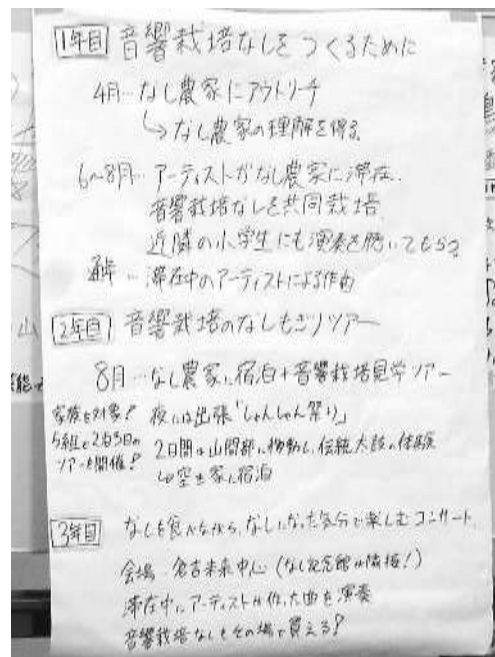 1年目 音響栽培なしをつくるために
4月…なし農家にアウトリーチ
↳なし農家の理解を得る
6〜8月…アーティストがなし農家に滞在.
音響栽培なしを共同栽培
近隣の小学生にも演奏を聴いてもらう
通年…滞在中のアーティストによる作曲
2年目 音響栽培のなしもぎりツアー
8月…なし農家に宿泊+音響栽培見学ツアー
家族を対象!
5組と2泊3日の
ツアーを開催!
夜には出張「しゃんしゃん祭り」
2日間は山間部に移動し、伝統太鼓の体験
空き家に宿泊
3年目 なしを食べながら、なしになった気分で楽しむコンサート.
会場 倉吉未来中心(なし記念館が隣接!)
滞在中にアーティストが作った曲を演奏
音響栽培なしもその場で買える!